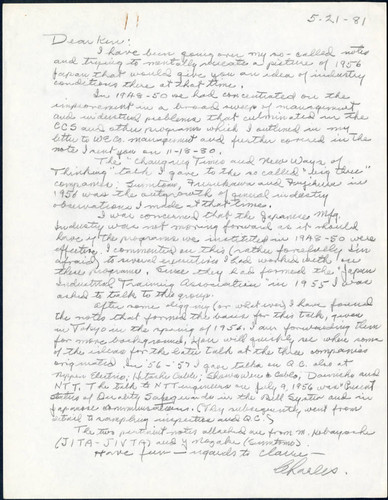 5-21-81
Dear Ken:
I have been going over my so-called notes
and trying to mentally recreate a picture of 1956
Japan that would give you an idea of industry
conditions there at that time.
In 1948-50 we had concentrated on the
improvement in a broad sweep of management
and industrial problems that culminated in the
CCS and other programs which I outlined in my
letter to W.E.Co. management and further covered in the
note I sent you on 11-18-80.
The "Changing Times and New Ways of
Thinking" talk I gave to the so called "big three"
companies Sumitomo, Furukawa and Fujikura in
1957 was the outgrowth of general industry
observations I made at that time.
I was concerned that the Japanese Mfg.
Industry was not moving forward as it should
have if the programs we instituted in 1948-50 were
effective. I commented on this (rather forcibly I'm
afraid) to several executives I had worked with on
these programs. Since they had formed the "Japan
Industrial Training Association" in 1955 I was
asked to talk to this group.
After some digging (or whatever) I have found
the notes that formed the basis for this talk, given
in Tokyo in the spring of 1956. I am forwarding them
for more background. You will quickly see when some
of the ideas for the later talk at the three companies
originated. In '56-57 I gave talks on Q.C. also at
Nippon Electric, Hitachi Cable, Showa Wire & Cable, Dainichi and
NTT. The talk to NTT engineers on July 9, 1956 was "Current
Status of Quality Safeguards in the Bell System and in
Japanese Communications. (They subsequently went from
detail to acceptance inspection and Q.C.)
The two pertinent notes attached are from M. Kobayashi
(JITA-JIVTA) and Y. (Sumitomo).
Have fun — regards to Claire —
Charles.